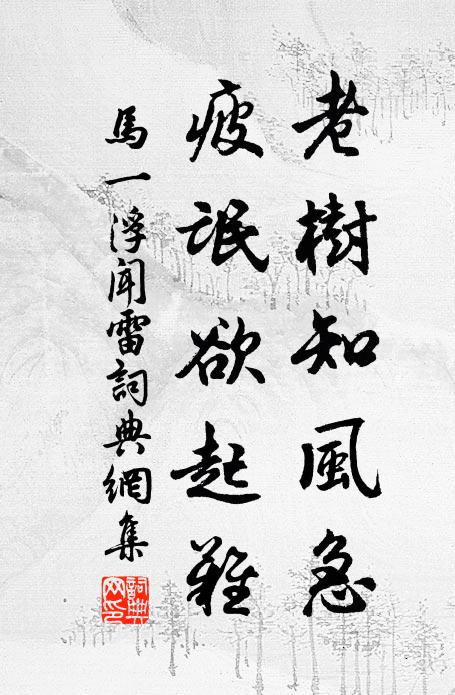 老樹知風急
疲氓欲起難
馬一浮聞雷詞典網集
詞典網印